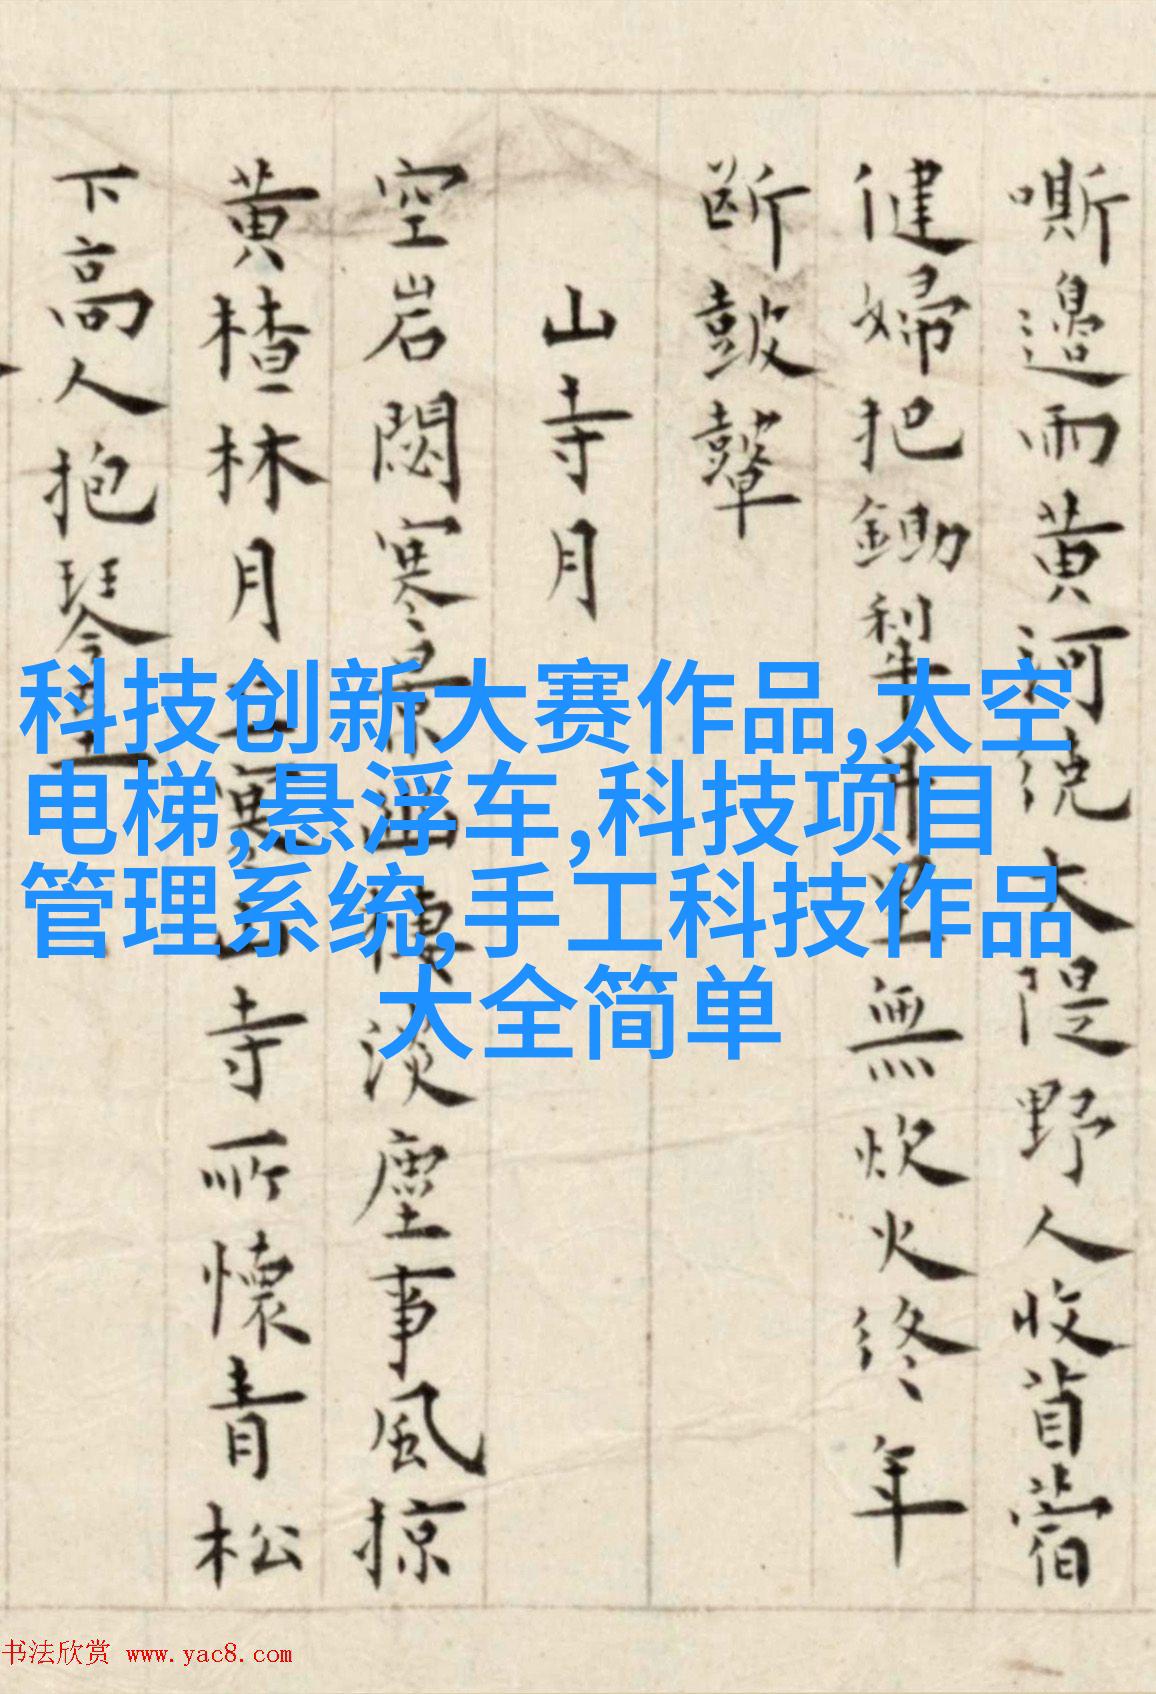 嘶邊雨黄河绕大隄野人收苜蓿
健婦把鋤犁井里無炊火終年
断鼓鼙
山寺月
空岩閟寒景幽棲淡塵事風掠
黄楂林月山寺所懷青松
下高人抱琴至
科技创新大赛作品,太空
电梯,悬浮车,科技项目
管理系统,手工科技作品
大全简单
书法欣赏 www.yac8.com